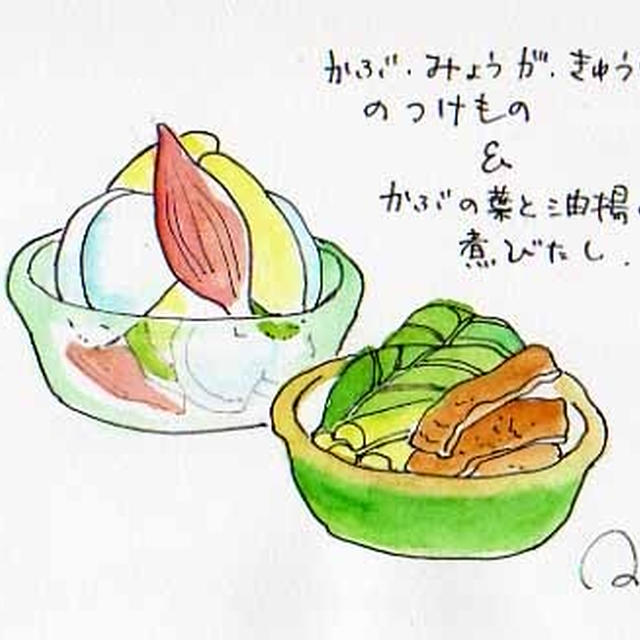 かぶ.みょうが.きゅう
のつけもの
&
かぶの葉と油揚
煮びたし.